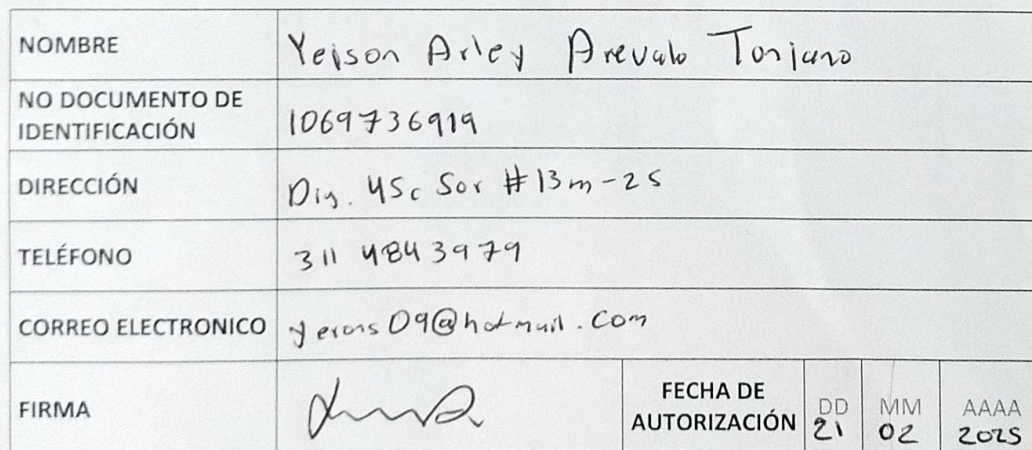 NOMBRE Yeison Arley Arevalo Toriano
NO DOCUMENTO DE
IDENTIFICACIÓN 1069736919
DIRECCIÓN Dig. 45c Sor #13m-25
TELÉFONO 311 4843979
CORREO ELECTRONICO @hotmail.com
FIRMA
FECHA DE
AUTORIZACIÓN
DD MM AAAA
21 02 2025